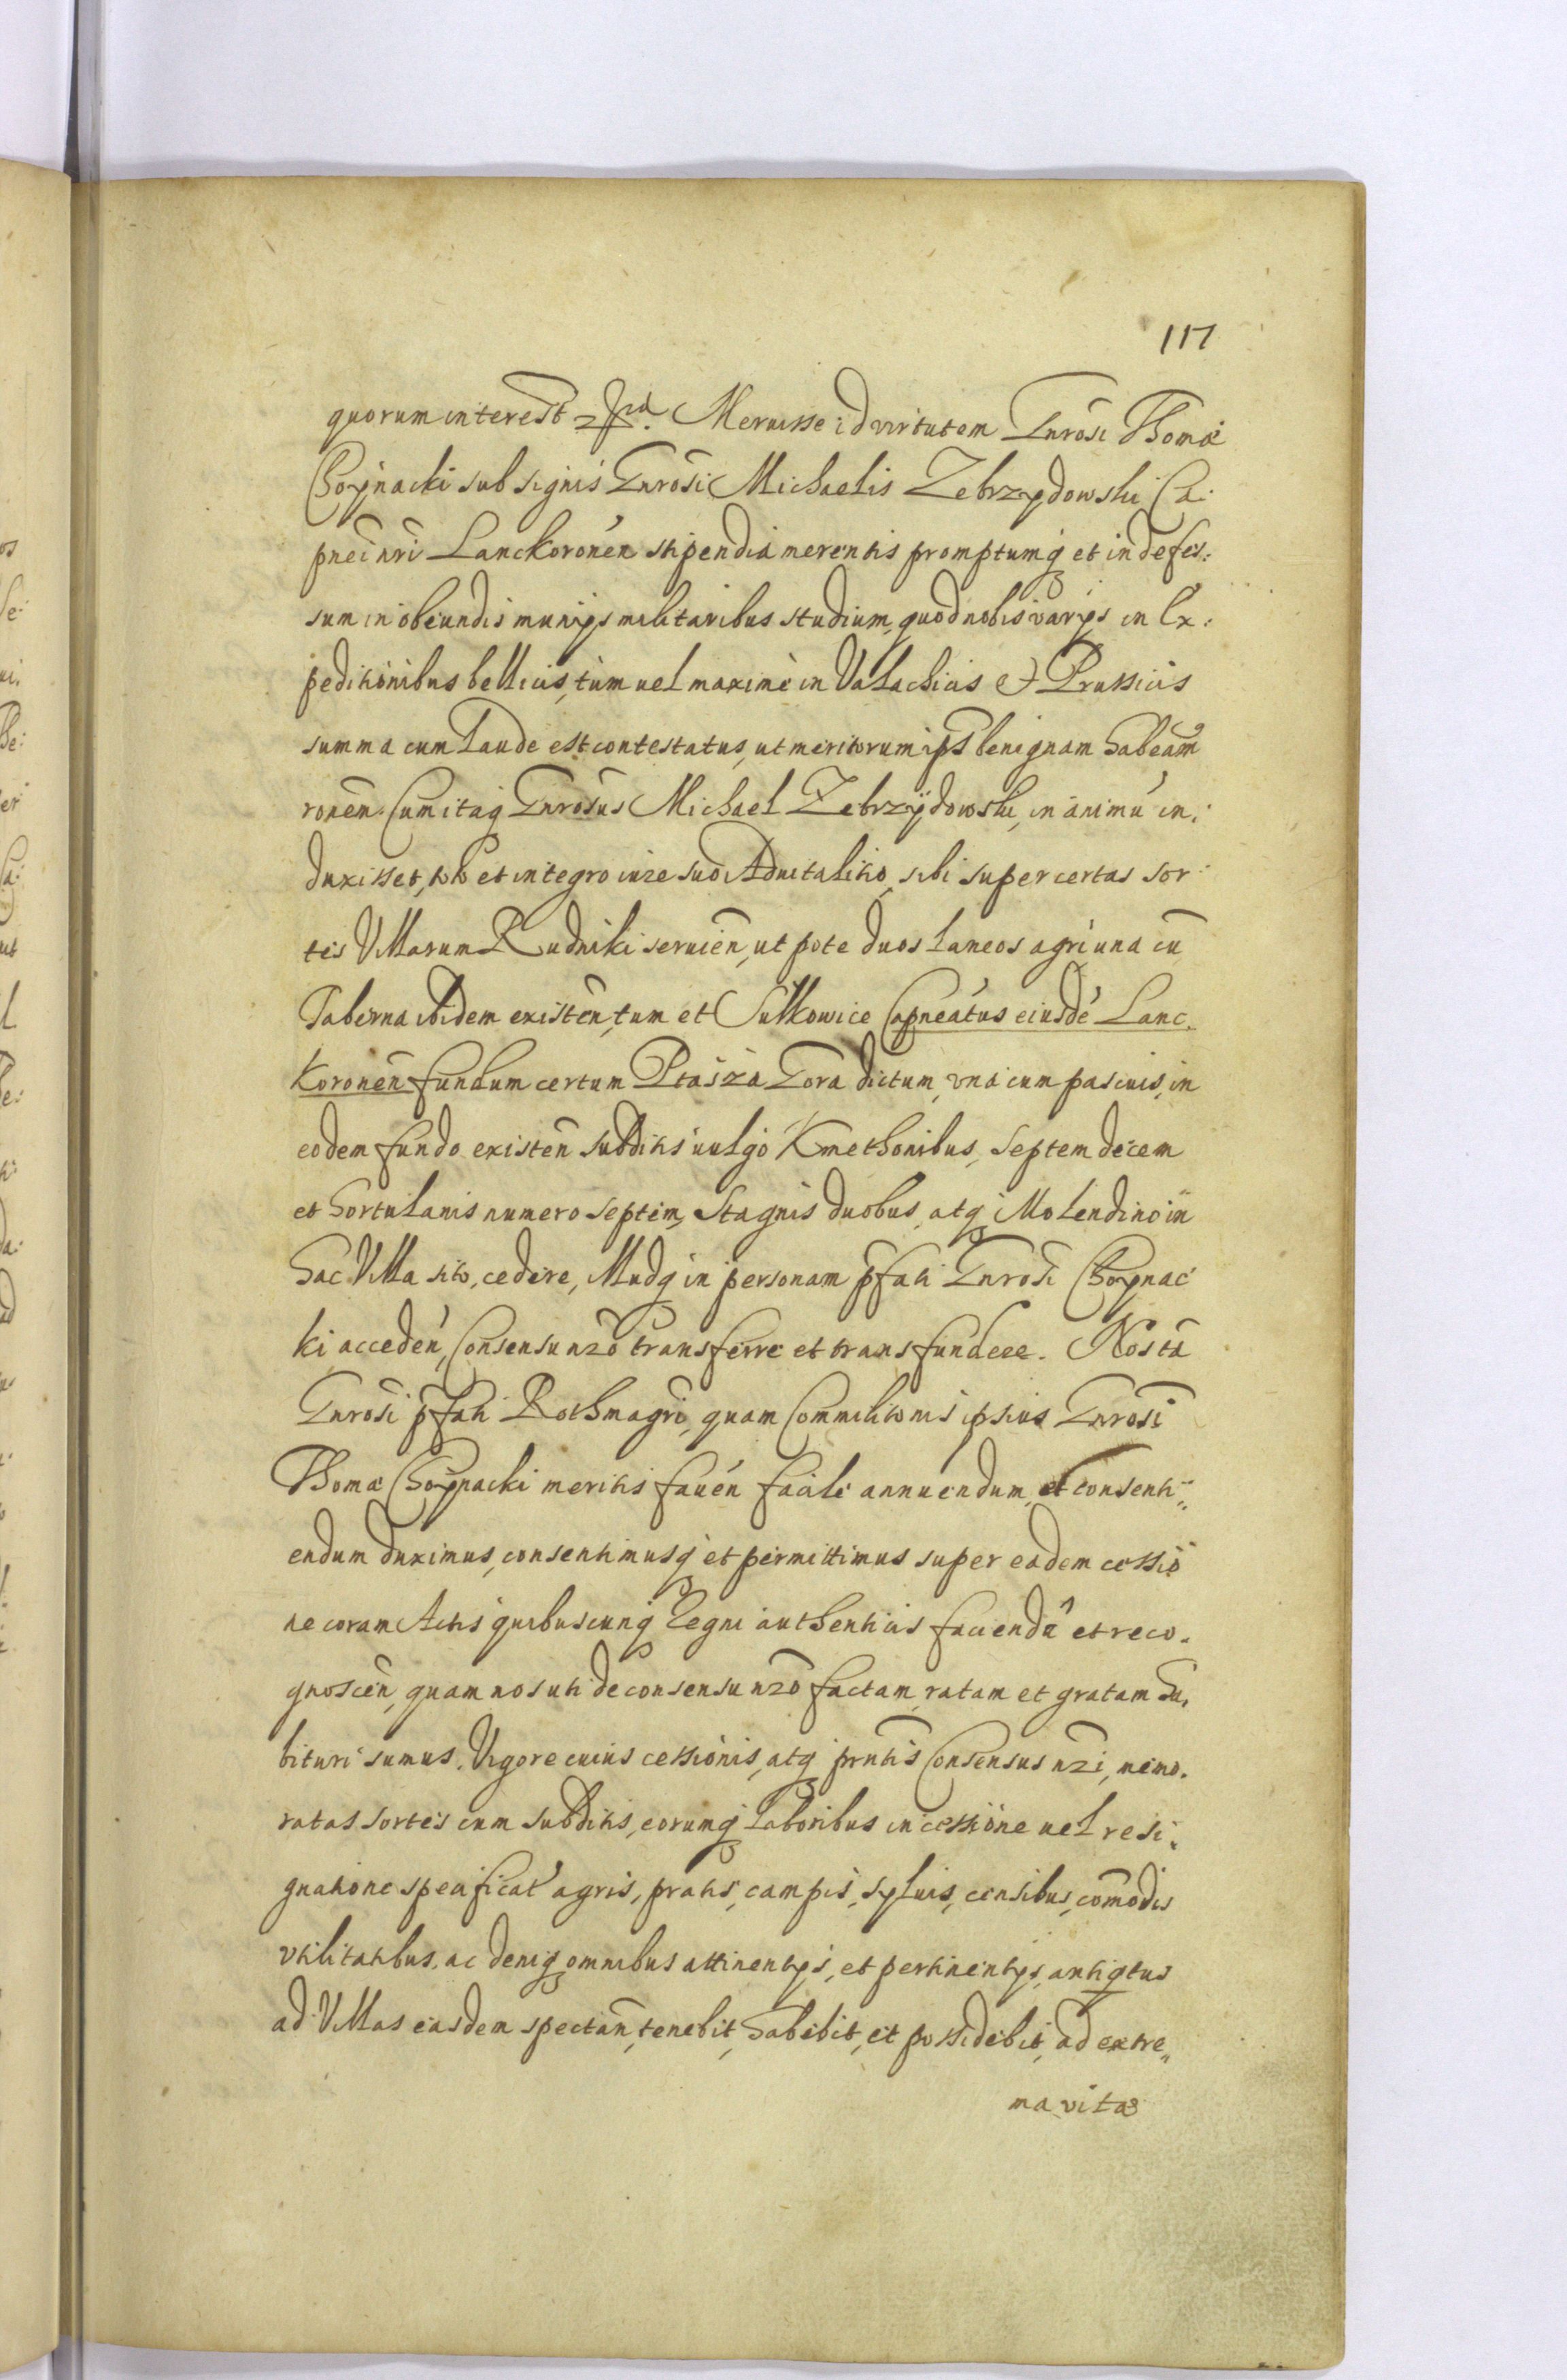 117
quorum interest. Meruisse id virtutem Gnrosi Thomæ
Choÿnacki sub signis Gnrosi Michaelis Zebrzydowski Ca:
pnei nri Lanckoronen stipendia merentis promptumq et indefes:
sum in obeundis munijs militaribus studium, quod nobis varijs in Ex:
peditionibus bellicis, tum uel maximè in Valachicis et Prussicis
summa cum Laude est contestatus, ut meritorum ips benignam habeam
ronem. Cum itaq Gnrosus Michael Zebrzÿdowski, in animu in:
duxisset, toto et integro iure suo Aduitalitio, sibi super certas sor:
tes Villarum Rudniki seruien, ut pote duos Laneos agri una cu
Taberna ibidem existen, tum et Sulkowice Capneatus eiusde Lanc.
Koronen fundum certum Ptasza Gora dictum, una cum pascuis, in
eodem fundo existen subditis uulgo Kmethonibus, Septem decem
et hortulanis numero septem, Stagnis duobus, atq Molendino in
hac Villa sito, cedere, Illudq in personam pfati Gnrosi Choynac
ki acceden, Consensu nro transferre et transfundere. Nos ta
Gnrosi pfati Rothmagri, quam Commilitonis ipsius Gnrosi
Thomæ Choÿnacki meritis fauen facile annuendum et consenti„
endum duximus, consentimusq et permittimus super eadem cessio
ne coram Actis quibuscunq Regni authenticis facienda et reco.
gnoscen, quam nos uti de consensu nro factam, ratam et gratam ha,
bituri sumus. Vigore cuius cessionis, atq pntis Consensus nri, memo.
ratas sortes cum subditis, eorumq laboribus in cessione uel resi:
gnatione specificat agris, pratis, campis, syluis, censibus, comodis
vtilitatibus, ac deniq omnibus attinentijs, et pertinentijs, antiqtus
ad Villas easdem spectan, tenebit, habebit, et possidebit, ad extre„
ma vitæ